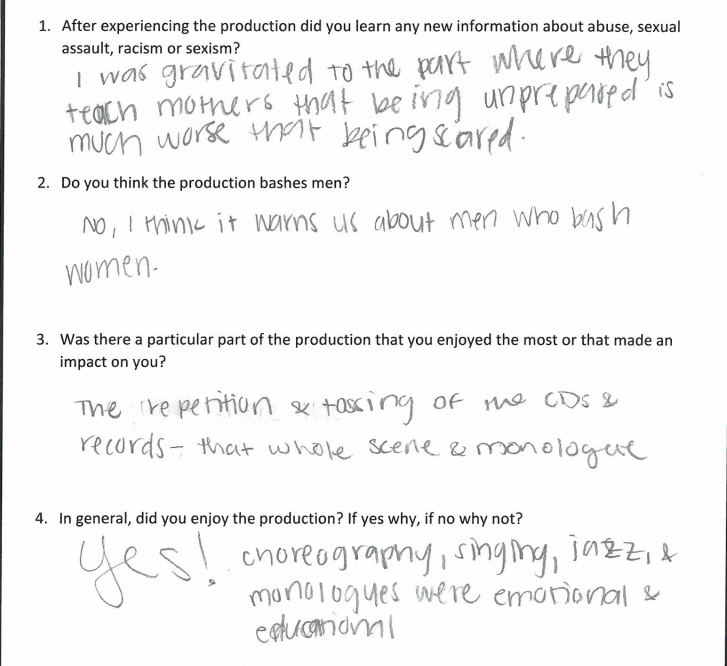 1. After experiencing the production did you learn any new information about abuse, sexual
assault, racism or sexism?
I was gravitated to the part where they
teach mothers that being unprepared is
much worse that being scared.
2. Do you think the production bashes men?
No, I think it warns us about men who bash
women.
3. Was there a particular part of the production that you enjoyed the most or that made an
impact on you?
The repetition & tossing of the CDs &
records- that whole scene & monologue
4. In general, did you enjoy the production? If yes why, if no why not?
Yes! choreography, singing, jazz, &
monologues were emotional &
educational